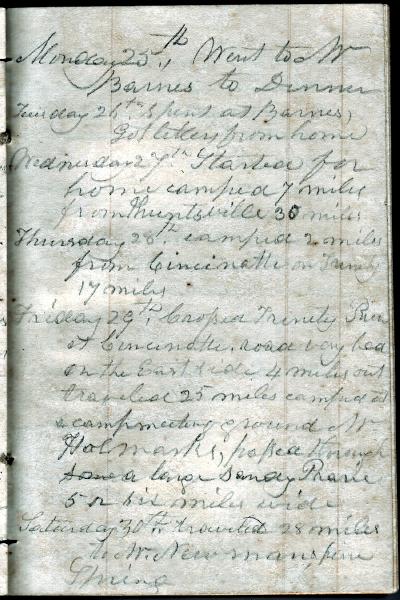 Monday 25th, Went to Mr
Barnes to Dinner
Tuesday 26th Spent at Barnes,
Got letters from home
Wednesday 27th Started for
home camped 7 miles
from Huntsville 30 miles
Thursday 28th camped 2 miles
from Cincinatti on Trinity
17 miles
Friday 29th, Crossed Trinity River
at Cincinatti. road very bad
on the East side 4 miles out
traveled 25 miles camped at
a campmeeting ground Mr
Holmarks, passed through
a large Sandy Prarie
5 or six miles wide
Saturday 30th traveled 28 miles
to Mr. Newmans, fine
Spring